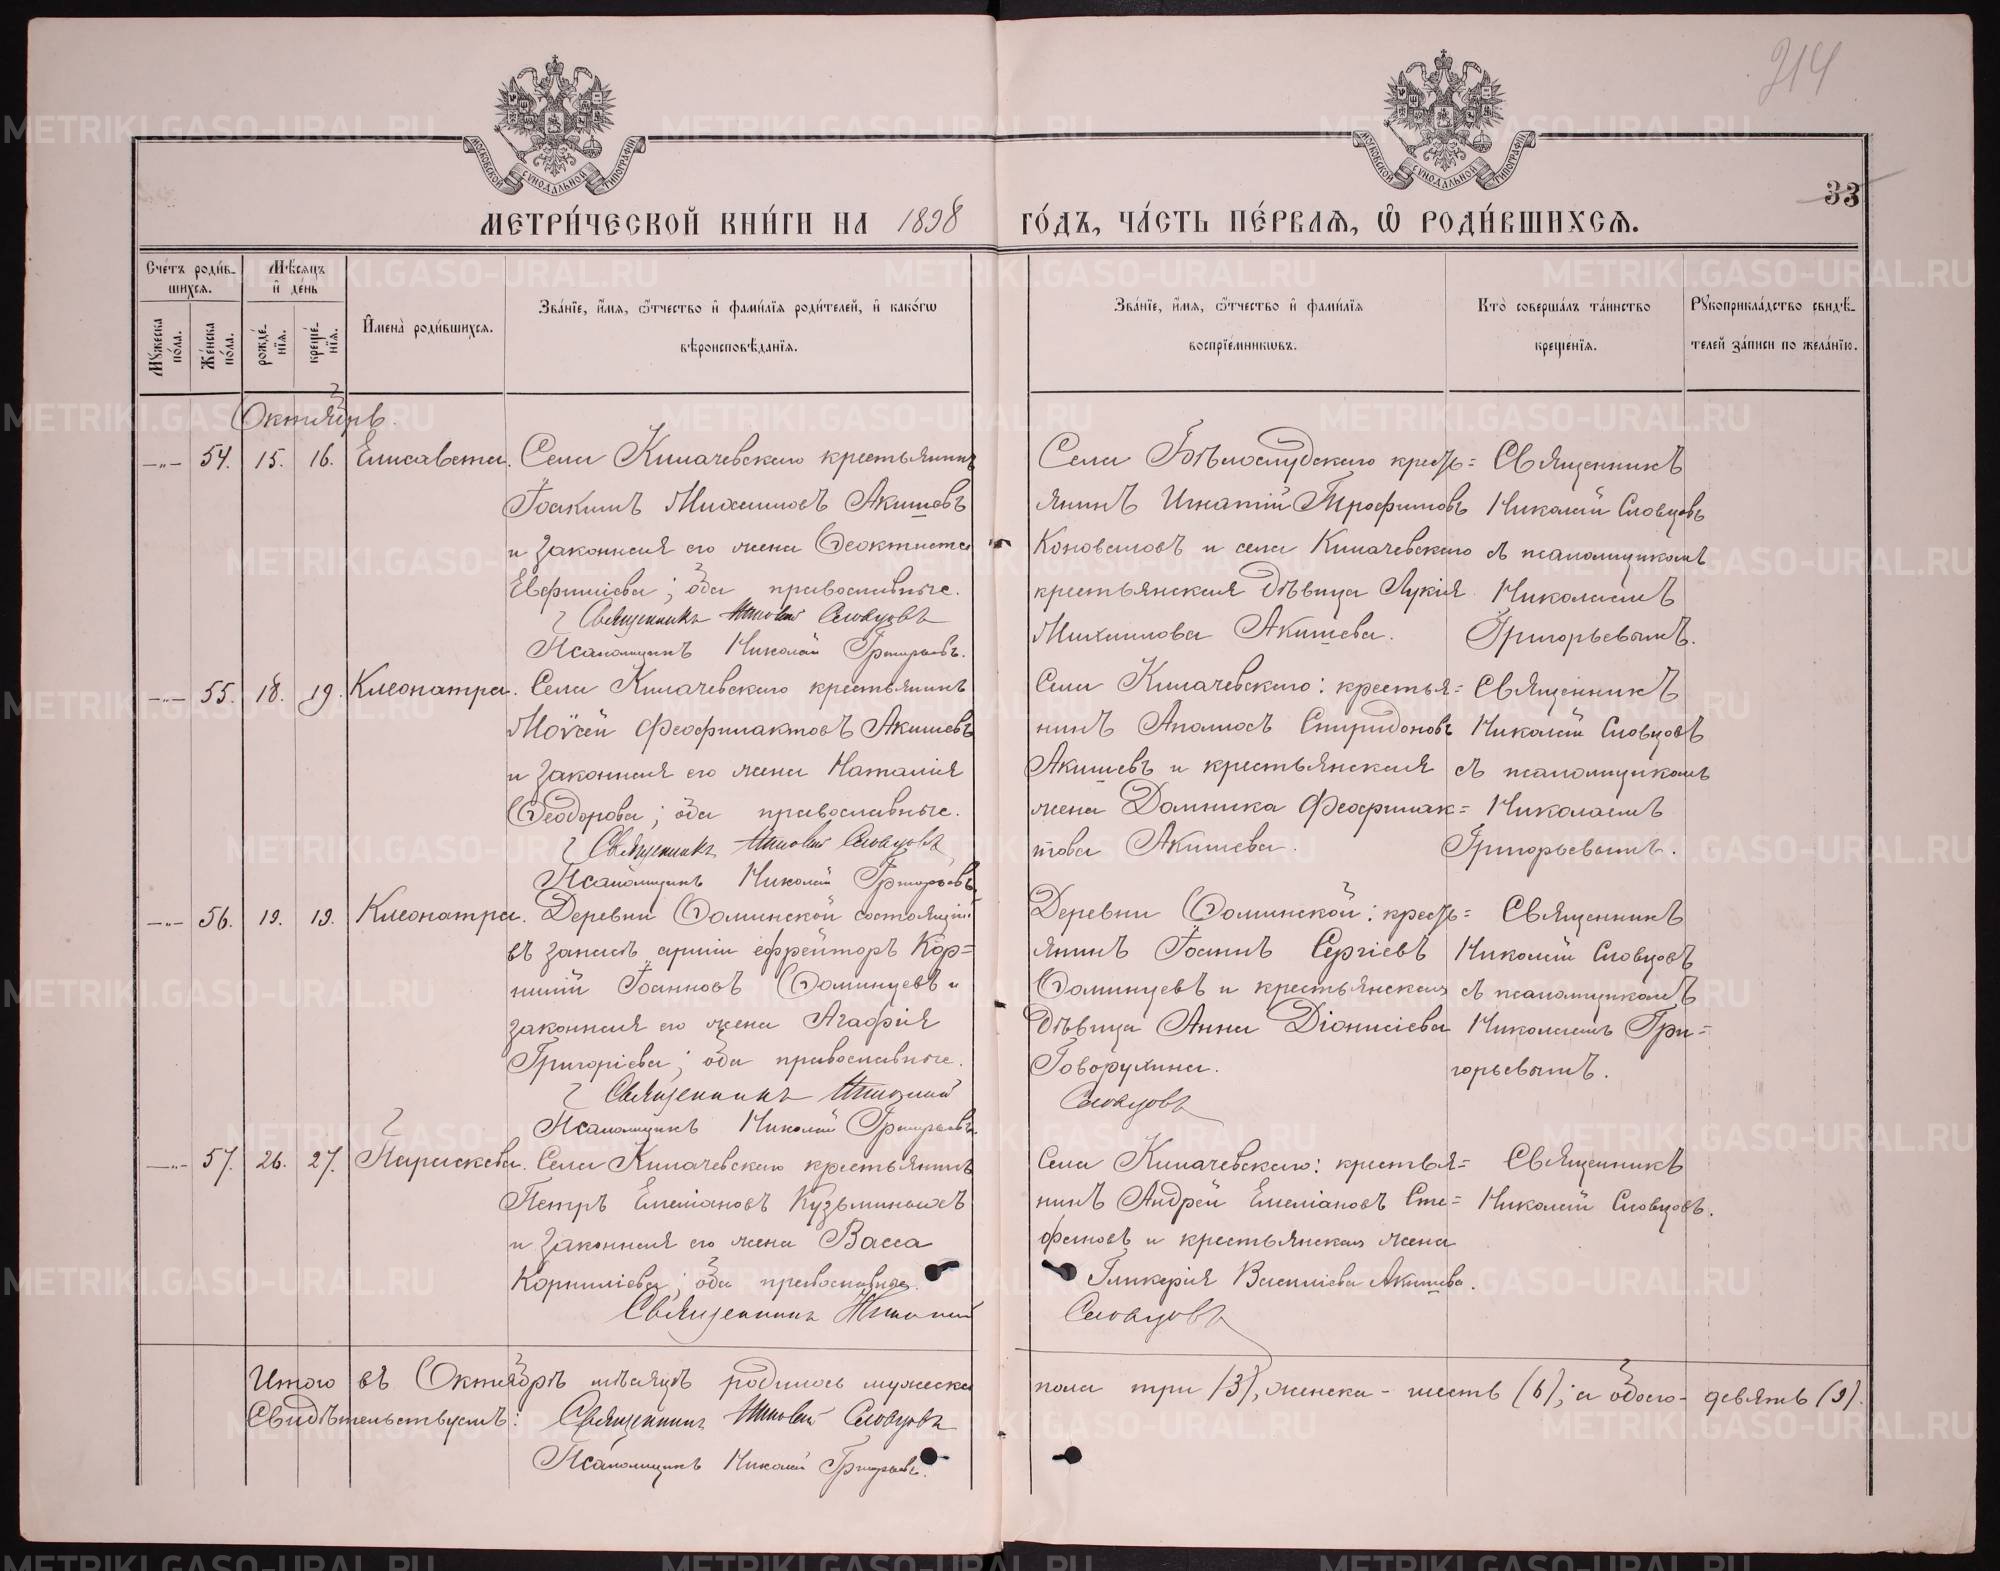 214
33
МОСКОВСКОЙ СѴНОДАЛЬНОЙ ТИПОГРАФІИ
МОСКОВСКОЙ СѴНОДАЛЬНОЙ ТИПОГРАФІИ
МЕТРИ́ЧЕСКОЙ КНИ́ГИ НА 1898 ГО́ДЪ, ЧА́СТЬ ПЕ́РВАЯ, Ѽ РОДИ́ВШИХСЯ.
Сче́тъ роди́в-
шихся.
Мѣ́сяцъ
и де́нь
Мꙋ́жеска
по́ла.
Же́нска
по́ла.
рожде́-
нїя.
креще́-
нїя.
И҆мена̀ роди́вшихся.
Зва́нїе, и҆́мя, ѻ҆́тчество и҆ фами́лїя роди́телей, и҆ како́гѡ
вѣроисповѣ́данїя.
Зва́нїе, и҆́мя, ѻ҆́тчество и҆ фами́лїя
воспрїе́мникѡвъ.
Кто̀ соверша́лъ та́инство
креще́нїя.
Рꙋкоприкла́дство свидѣ́-
телей за́писи по жела́нїю.
Октябрь.
—„— 54. 15. 16. Елисавета.
Села Килачевскаго крестьянинъ
Іоакимъ Михаиловъ Акишевъ
и законная его жена Ѳеоктиста
Евфиміева; оба православные.
Священникъ Николай Словцовъ
Псаломщикъ Николай Григорьевъ.
Села Бѣлослудскаго кресть=
янинъ Игнатій Трофимовъ
Коноваловъ и села Килачевскаго
крестьянская дѣвица Лукія
Михаилова Акишева.
Священникъ
Николай Словцовъ
съ псаломщикомъ
Николаемъ
Григорьевымъ.
—„— 55. 18. 19. Клеопатра.
Села Килачевскаго крестьянинъ
Моѵсей Феофилактовъ Акишевъ
и законная его жена Наталія
Ѳеодорова; оба православные.
Священникъ Николай Словцовъ
Псаломщикъ Николай Григорьевъ
Села Килачевскаго: крестья=
нинъ Аполлосъ Спиридоновъ
Акишевъ и крестьянская
жена Домника Феофилак=
това Акишева.
Священникъ
Николай Словцовъ
съ псаломщикомъ
Николаемъ
Григорьевымъ.
—„— 56. 19. 19. Клеопатра.
Деревни Ѳоминской состоящій
въ запасѣ арміи ефрейторъ Кор=
нилій Іоанновъ Ѳоминцевъ и
законная его жена Агафія
Григоріева; оба православные.
Священникъ Николай
Псаломщикъ Николай Григорьевъ.
Деревни Ѳоминской: кресть=
янинъ Іоаннъ Сергіевъ
Ѳоминцевъ и крестьянская
дѣвица Анна Діонисіева
Говорухина.
Словцовъ
Священникъ
Николай Словцовъ
съ псаломщикомъ
Николаемъ Гри=
горьевымъ.
—„— 57. 26. 27. Параскева.
Села Килачевскаго крестьянинъ
Петръ Емеліановъ Кузьминыхъ
и законная его жена Васса
Корниліева; оба православные.
Священникъ Николай
Села Килачевскаго: крестья=
нинъ Андрей Емеліановъ Сте=
фановъ и крестьянская жена
Гликерія Василіева Акишева.
Словцовъ
Священникъ
Николай Словцовъ.
Итого въ Октябрѣ мѣсяцѣ родилось мужеска пола три (3), женска - шесть (6); а обоего - девять (9).
Свидѣтельствуемъ: Священникъ Николай Словцовъ
Псаломщикъ Николай Григорьевъ.
METRIKI.GASO-URAL.RU